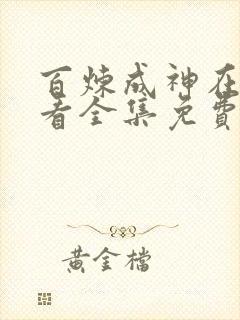 百炼成神在
看全集免費
黃金檔